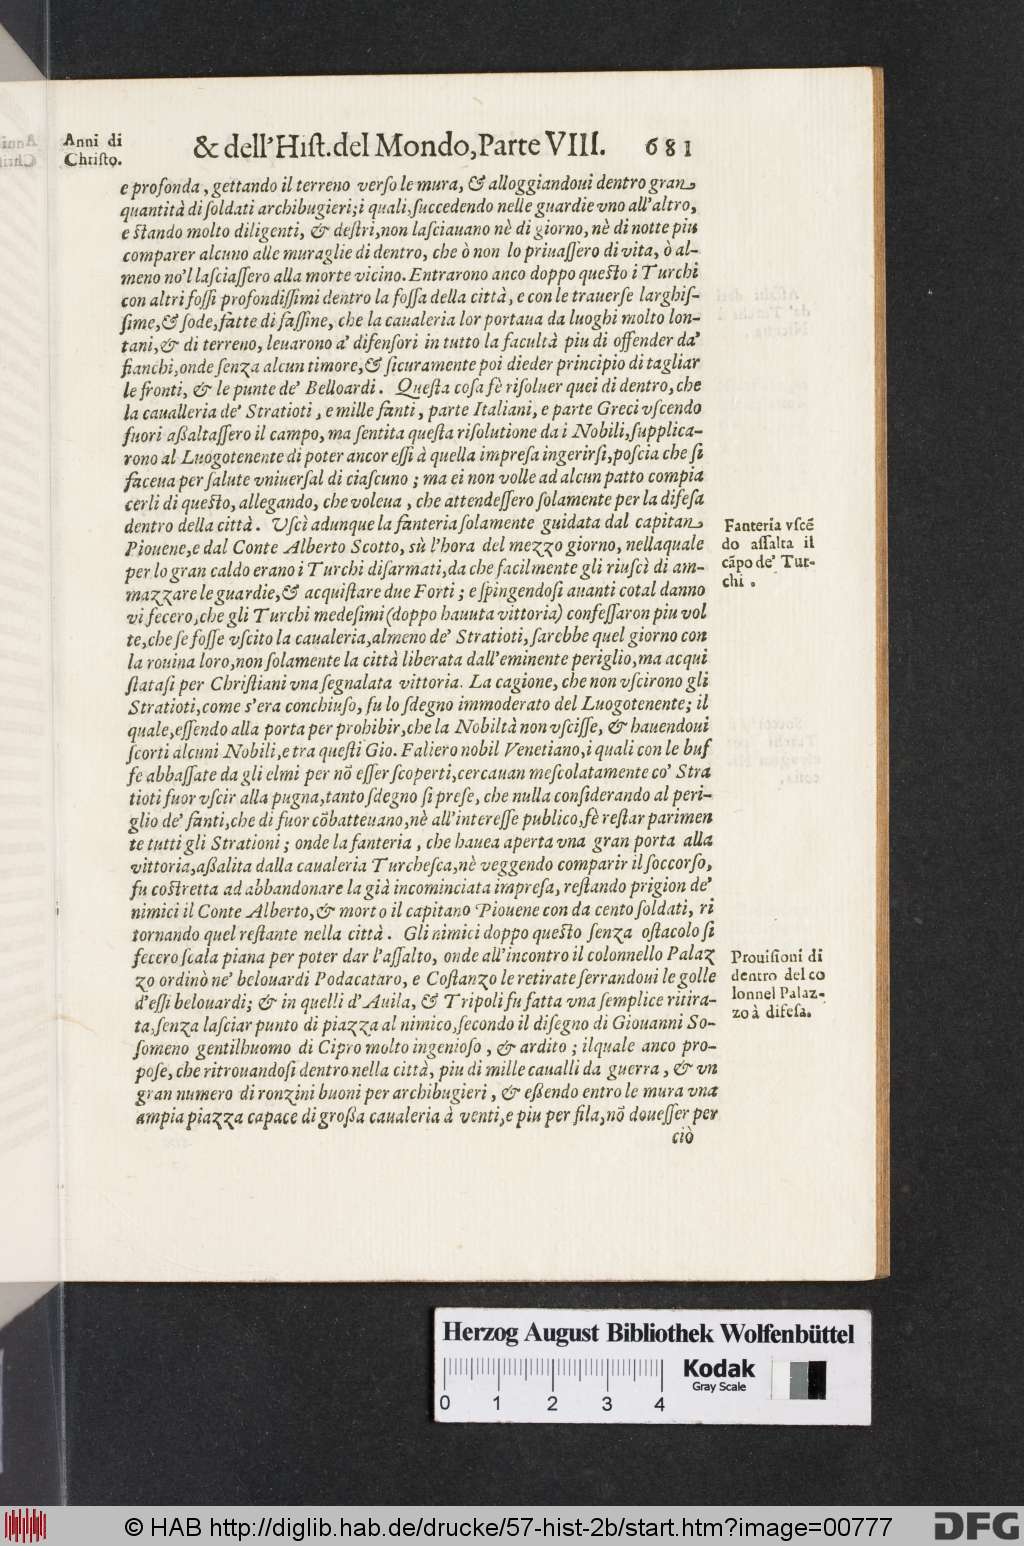 Anni di
Chriſto.
& dell'Hiſt. del Mondo, Parte VIII. 681
e profonda, gettando il terreno verſo le mura, & alloggiandoui dentro gran
quantità di ſoldati archibugieri; i quali, ſuccedendo nelle guardie vno all'altro,
e ſtando molto diligenti, & deſtri, non laſciauano nè di giorno, nè di notte piu
comparer alcuno alle muraglie di dentro, che ò non lo priuaſſero di vita, ò al-
meno no'l laſciaſſero alla morte vicino. Entrarono anco doppo queſto i Turchi
con altri foſſi profondiſſimi dentro la foſſa della città, e con le trauerſe larghiſ-
ſime, & ſode, fatte di faſſine, che la caualeria lor portaua da luoghi molto lon-
tani, & di terreno, leuarono a' difenſori in tutto la facultà piu di offender da'
fianchi, onde ſenza alcun timore, & ſicuramente poi dieder principio di tagliar
le fronti, & le punte de' Belloardi. Queſta coſa fè riſoluer quei di dentro, che
la caualleria de' Stratioti, e mille fanti, parte Italiani, e parte Greci vſcendo
fuori aſſaltaſſero il campo, ma ſentita queſta riſolutione da i Nobili, ſupplica-
rono al Luogotenente di poter ancor eſſi à quella impreſa ingerirſi, poſcia che ſi
faceua per ſalute vniuerſal di ciaſcuno; ma ei non volle ad alcun patto compia
cerli di queſto, allegando, che voleua, che attendeſſero ſolamente per la difeſa
dentro della città. Vſcì adunque la fanteria ſolamente guidata dal capitan
Piouene, e dal Conte Alberto Scotto, sù l'hora del mezzo giorno, nellaquale
per lo gran caldo erano i Turchi diſarmati, da che facilmente gli riuſcì di am-
mazzare le guardie, & acquiſtare due Forti; e ſpingendoſi auanti cotal danno
vi fecero, che gli Turchi medeſimi (doppo hauuta vittoria) confeſſaron piu vol
te, che ſe foſſe vſcito la caualeria, almeno de' Stratioti, ſarebbe quel giorno con
la rouina loro, non ſolamente la città liberata dall'eminente periglio, ma acqui
ſtataſi per Chriſtiani vna ſegnalata vittoria. La cagione, che non vſcirono gli
Stratioti, come s'era conchiuſo, fu lo ſdegno immoderato del Luogotenente; il
quale, eſſendo alla porta per prohibir, che la Nobiltà non vſciſſe, & hauendoui
ſcorti alcuni Nobili, e tra queſti Gio. Faliero nobil Venetiano, i quali con le buf
fe abbaſſate da gli elmi per nõ eſſer ſcoperti, cercauan meſcolatamente co' Stra
tioti fuor vſcir alla pugna, tanto ſdegno ſi preſe, che nulla conſiderando al peri-
glio de' fanti, che di fuor cõbatteuano, nè all'intereſſe publico, fè reſtar parimen
te tutti gli Strationi; onde la fanteria, che hauea aperta vna gran porta alla
vittoria, aſſalita dalla caualeria Turcheſca, nè veggendo comparir il ſoccorſo,
fu coſtretta ad abbandonare la già incominciata impreſa, reſtando prigion de'
nimici il Conte Alberto, & morto il capitano Piouene con da cento ſoldati, ri
tornando quel reſtante nella città. Gli nimici doppo queſto ſenza oſtacolo ſi
fecero ſcala piana per poter dar l'aſſalto, onde all'incontro il colonnello Palaz
zo ordinò ne' belouardi Podacataro, e Coſtanzo le retirate ſerrandoui le golle
d'eſſi belouardi; & in quelli d'Auila, & Tripoli fu fatta vna ſemplice ritira-
ta, ſenza laſciar punto di piazza al nimico, ſecondo il diſegno di Giouanni So-
ſomeno gentilhuomo di Cipro molto ingenioſo, & ardito; ilquale anco pro-
poſe, che ritrouandoſi dentro nella città, piu di mille caualli da guerra, & vn
gran numero di ronzini buoni per archibugieri, & eſſendo entro le mura vna
ampia piazza capace di groſſa caualeria à venti, e piu per fila, nõ doueſſer per
ciò
Fanteria vſcẽ
do aſſalta il
cãpo de' Tur-
chi.
Prouiſioni di
dentro del co
lonnel Palaz-
zo à difeſa.
Herzog August Bibliothek Wolfenbüttel
0 1 2 3 4
Kodak
Gray Scale
© HAB http://diglib.hab.de/drucke/57-hist-2b/start.htm?image=00777
DFG